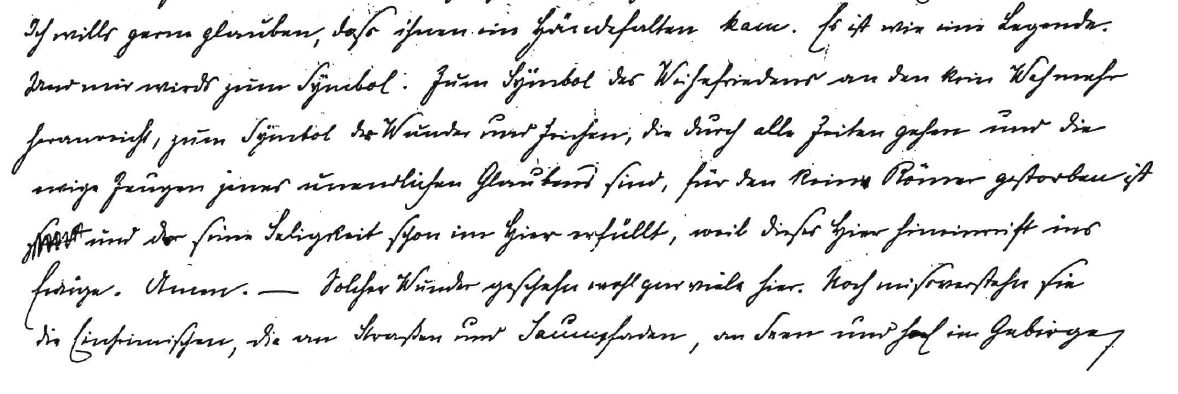 Ich wills gerne glauben, dass ihnen ein Händefalten kam. Es ist wie eine Legende.
Und mir wirds zum Symbol. Zum Symbol des Weihefriedens an den kein Weh mehr
heranreicht, zum Symbol der Wunder und Zeichen, die durch alle Zeiten gehen und die
ewige Zeugen jenes unendlichen Glaubens sind, für den keiner Römer gestorben ist
und der seine Seligkeit schon im Hier erfüllt, weil dieses Hier hineinreift ins
Ewige. Amen. — Solcher Wunder geschehn wohl gar viele hier. Noch missverstehn sie
die Einheimischen, die an Straßen und Saumpfaden, an Seen und hoch im Gebirge